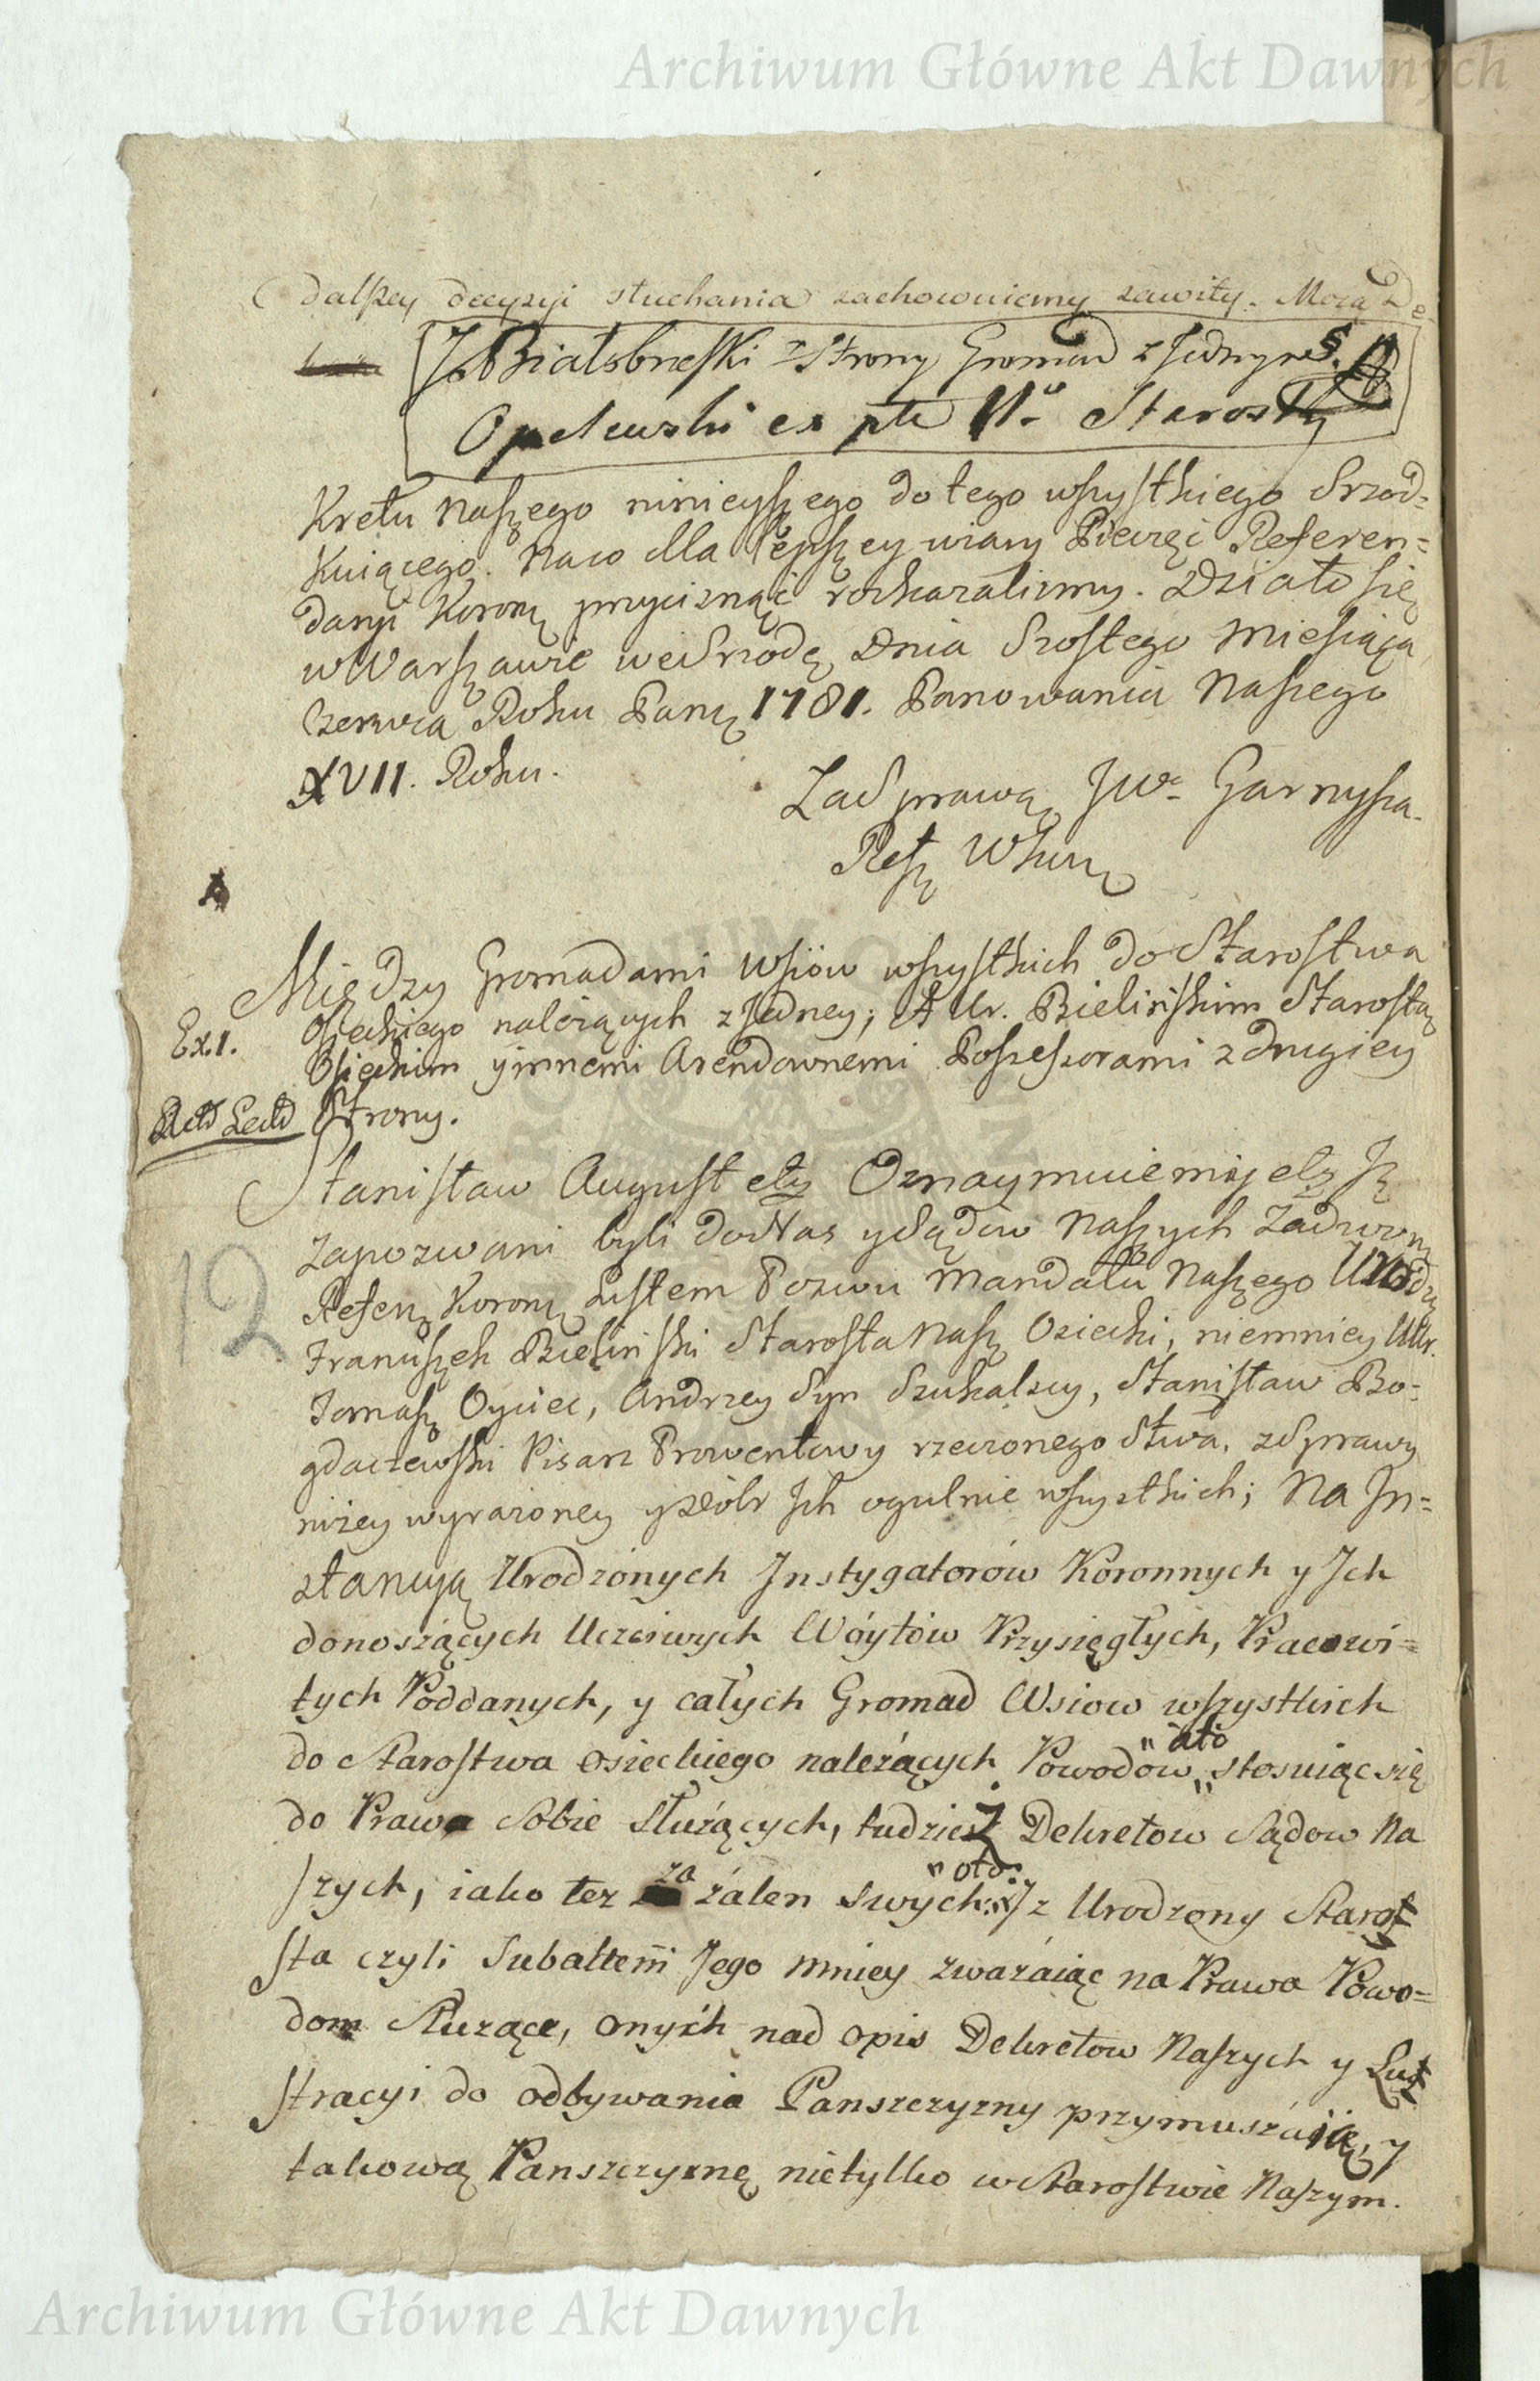 Archiwum Główne Akt Dawnych
dalszey decyzyi słuchania zachowuiemy zawity. Mocą De
JBiałobrzeski z Strony Gromad z Jedney S.
Opelewski ex pte Ur. Starosty
Kretu Naszego ninieyszego do tego wszystkiego Srzod=
kuiącego. Na co dla lepszey wiary Pieczęć Referen=
daryi Koronę przycisnąć roskazalismy. Działo się
w Warszawie we Srzodę Dnia Szostego Miesiąca
Czerwca Roku Panę 1781. Panowania Naszego
XVII. Roku.
Za Sprawą JW. Garnysza
Refę WKuro
Między Gromadami Wsiów wszystkich do Starostwa
Ex. 1. Osieckiego należących z Jedney; A Ur. Bielińskim Starostą
Osieckim y innemi Arendownemi Possessorami z drugiey
Strony.
Stanisław August etę Oznaymuiemy etę Jż
Zapozwani byli do Nas y Sądów Naszych Zadworn
Refenę Koronę Listem Pozwu Mandatu Naszego Urodzę
Franuszek Bieliński Starosta Nasz Osiecki, niemniey UUr.
Tomasz Oyciec, Andrzey Syn Szukalscy, Stanisław Bo-
gdaczewski Pisarz Prowentowy rzeczonego Stwa, z Sprawy
niżey wyrażoney y zeólr Jch ogulnie wszystkich; Na Jn=
stancyą Urodzonych Jnstygatorów Koronnych y Jch
donoszących Uczciwych Wóytów Przysięgłych, Pracowi=
tych Poddanych, y całych Gromad Wsiow wszystkich
do Starostwa Osieckiego należących Powodow „ato„ stosuiąc się
do Prawa Sobie Służących, tudziesz Dekretow Sądow Na
szych, iako tez za żalen swych: „oto: Jż Urodzony Staros
sta czyli Subalterni Jego mniey zważaiąc na Prawa Powo=
dom Służące, onych nad opis Dekretow Naszych y Lus
stracyi do odbywania Panszczyzny przymuszaiią, y
takową Panszczyznę nietylko w Starostwie Naszym.
12
Archiwum Główne Akt Dawnych